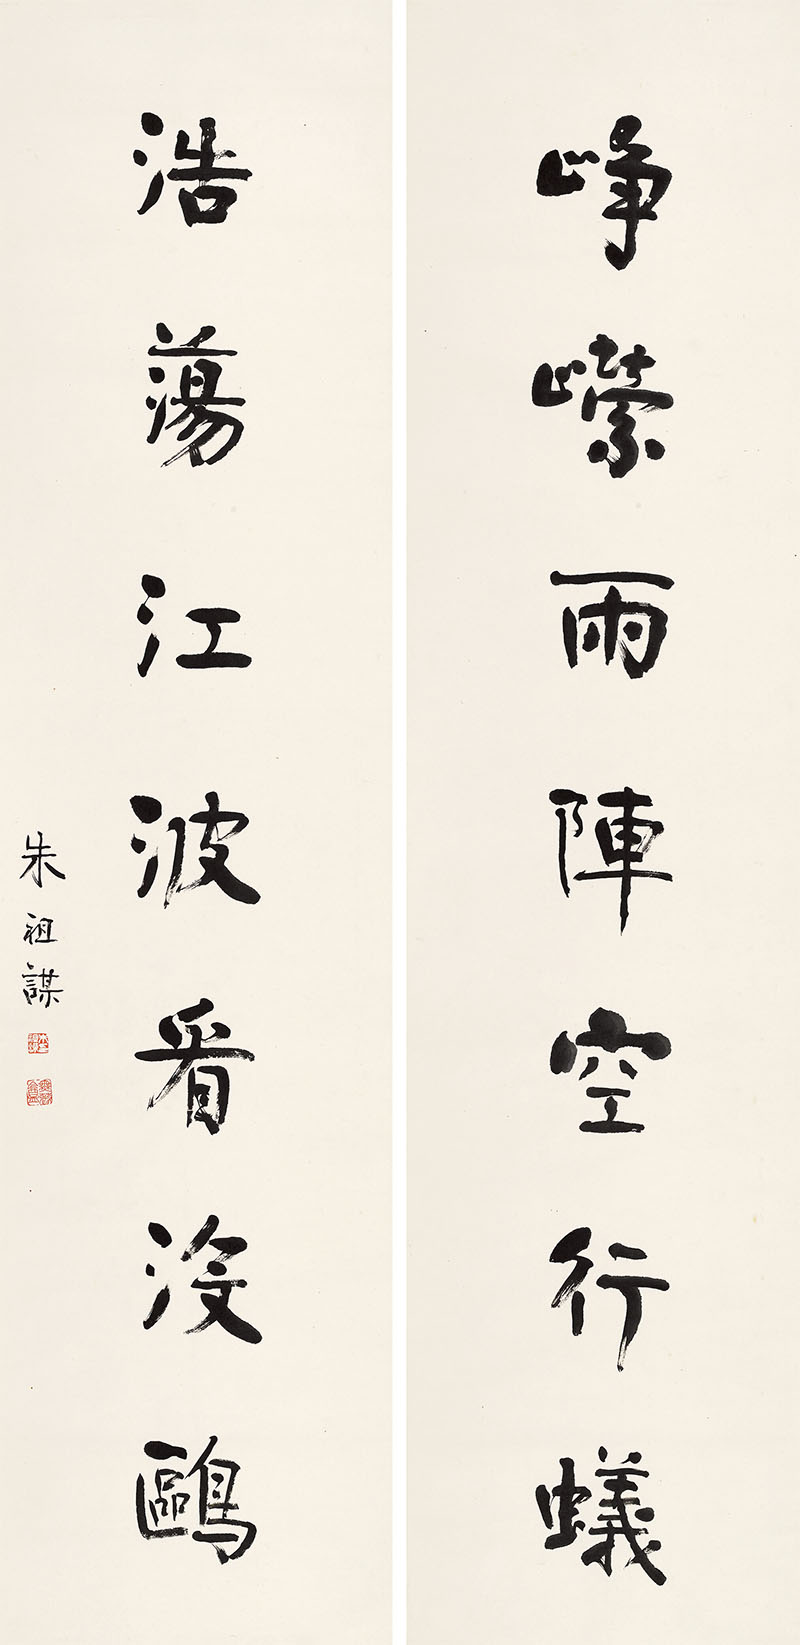 崢嶸雨陣空行蟻
浩蕩江波看沒鷗
朱祖謀